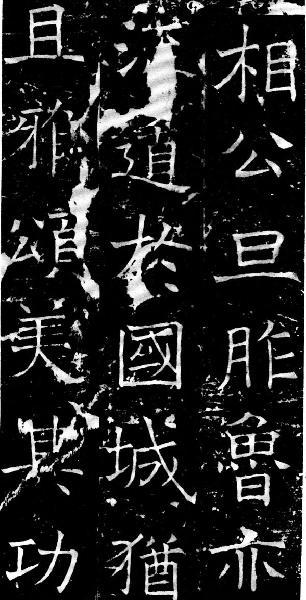 相公旦胙魯亦
流道於國城猶
且雅頌美其功